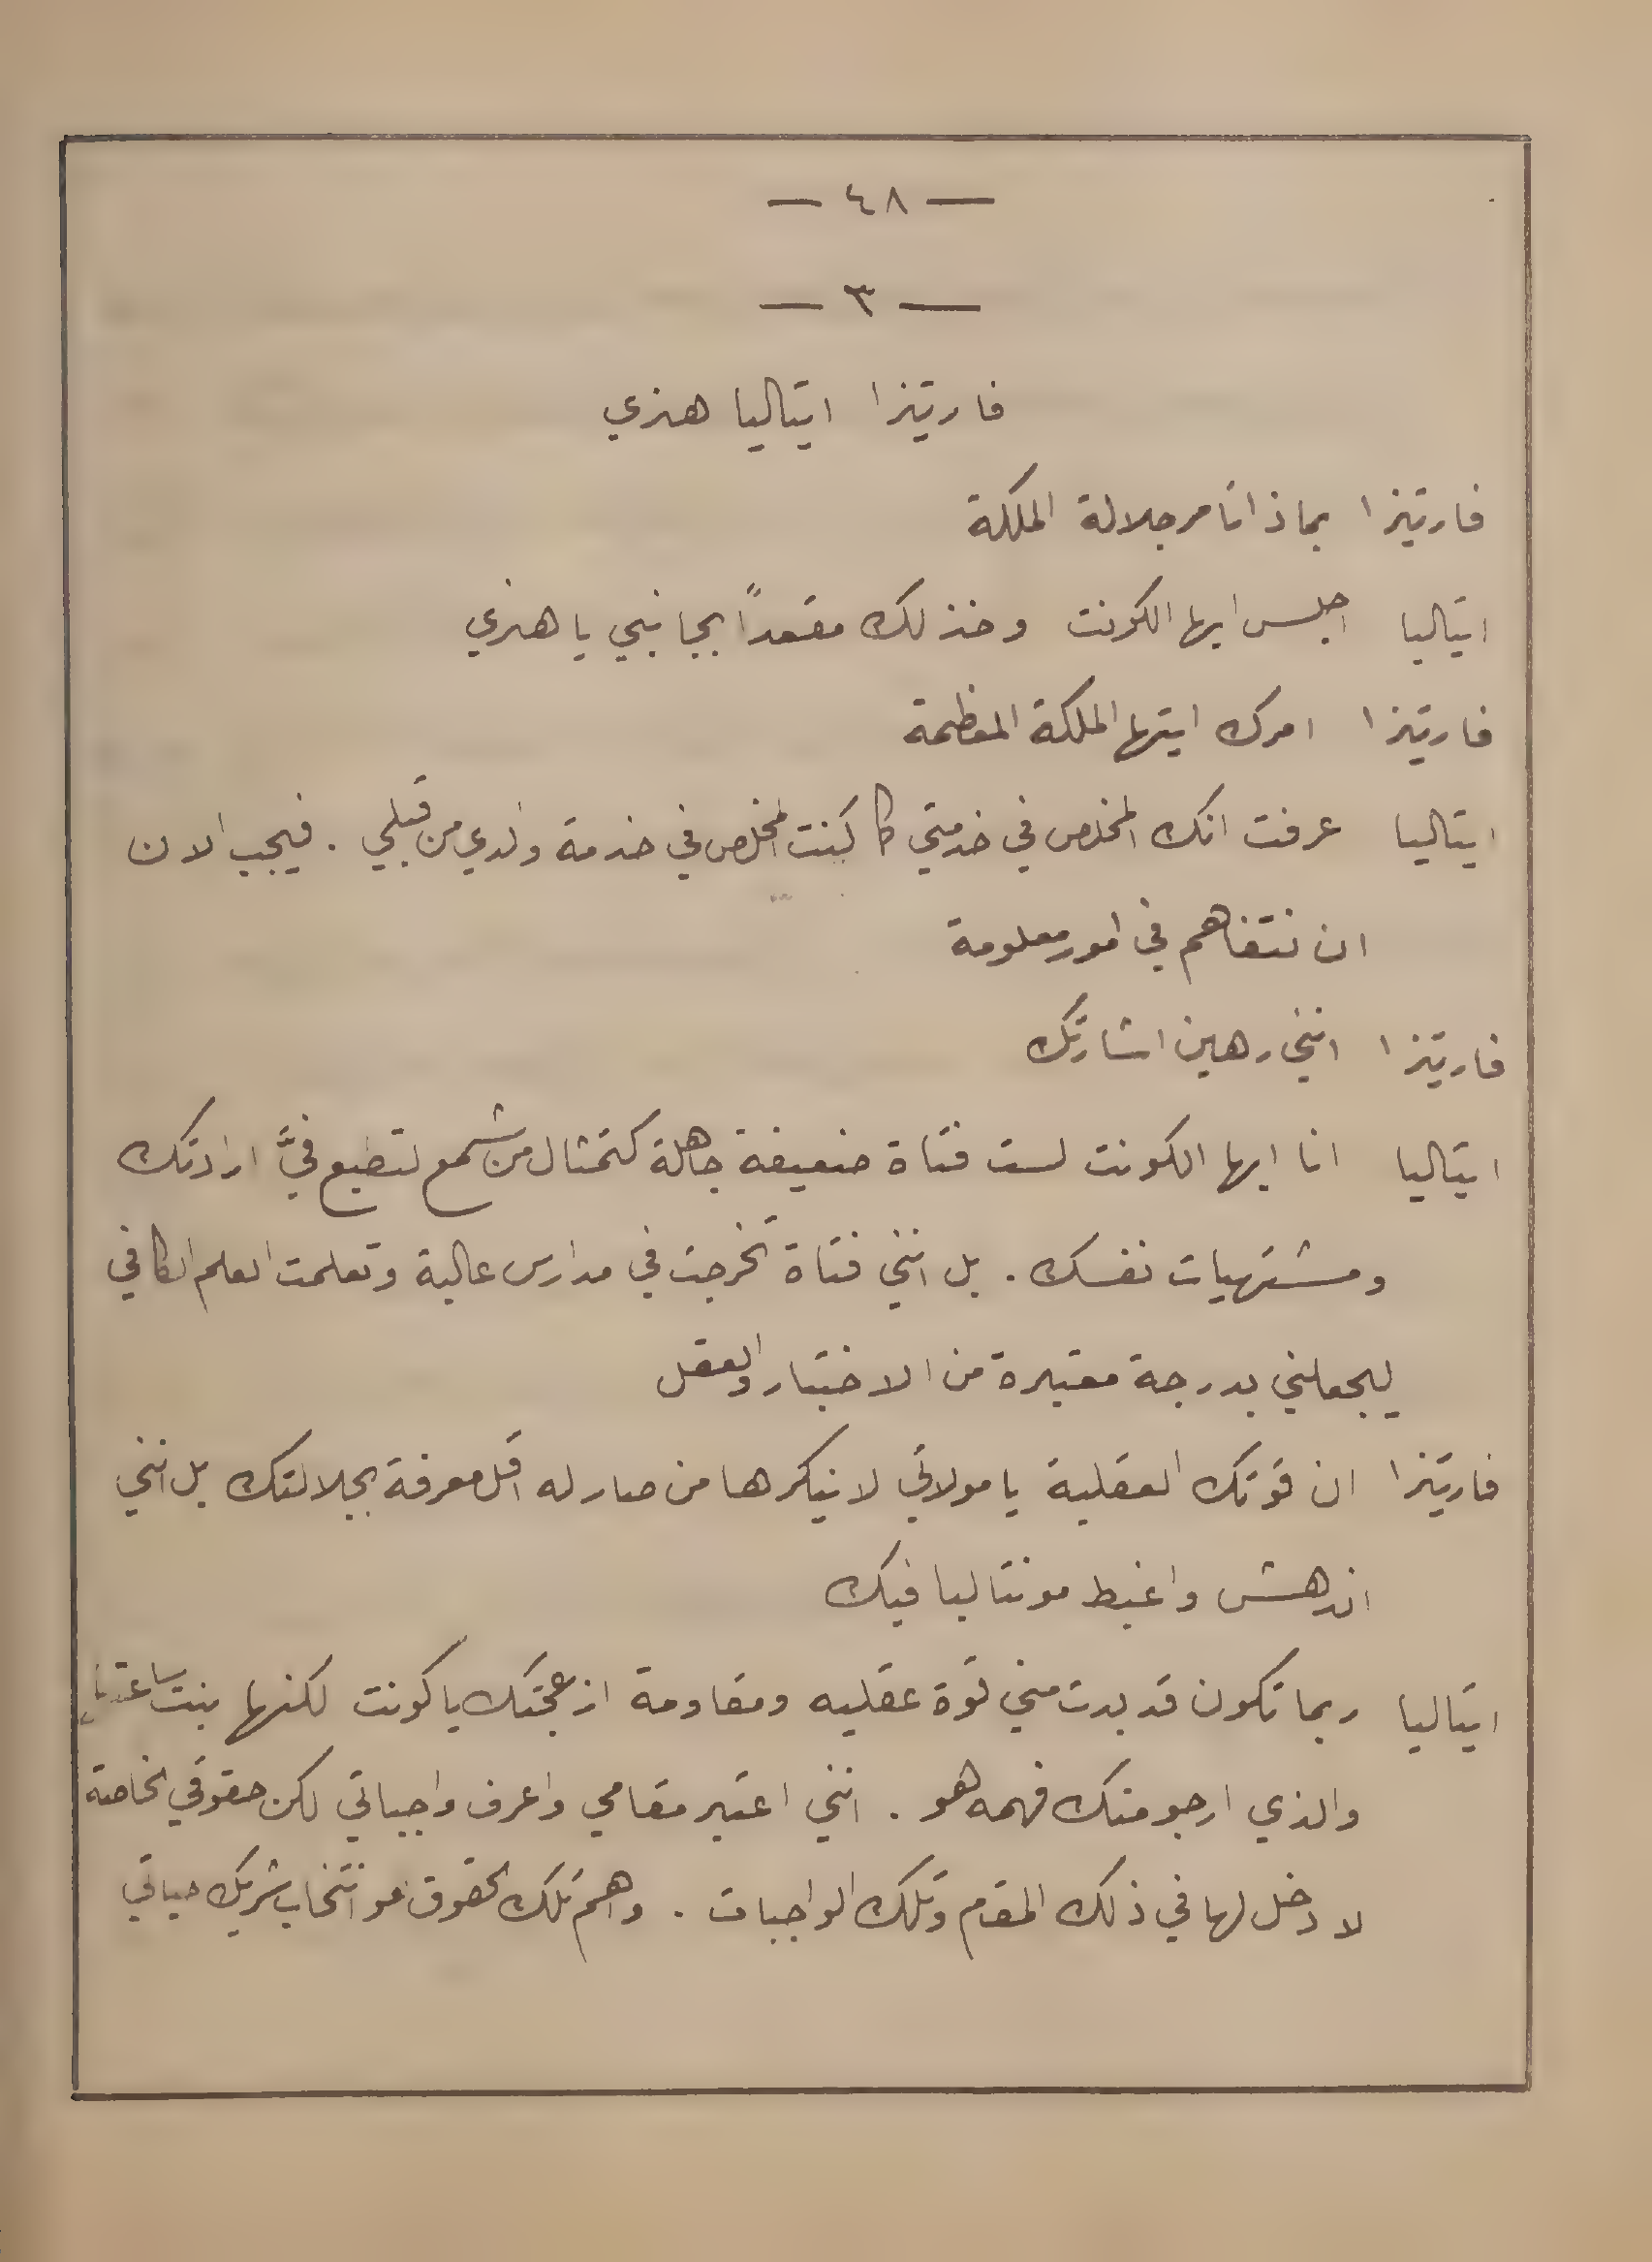 — ٤٨ —
— ٣ —
فارتيزا ايتاليا هنري
فارتيزا بماذا تأمر جلالة الملكة
ايتاليا اجلس ايها الكونت وخذ لك مقعداً بجانبي يا هنري
فارتيزا امرك ايتها الملكة المعظمة
ايتاليا عرفت انك المخلص في خدمتي كما كنت المخلص في خدمة والدي من قبلي . فيجب الان
ان نتفاهم في امور معلومة
فارتيزا انني رهين اشارتك
ايتاليا انا ايها الكونت لست فتاة ضعيفة جاهلة كتمثال من شمع لتطبع فيَّ ارادتك
ومشتهيات نفسك . بل انني فتاة تخرجت في مدارس عالية وتعلمت العلم الكافي
ليجعلني بدرجة معتبرة من الاختبار والعقل
فارتيزا ان قوتك العقلية يا مولاتي لا ينكرها من صار له اقل معرفة بجلالتك بل انني
اندهش واغبط مونتاليا فيك
ايتاليا ربما تكون قد بدت مني قوة عقليه ومقاومة ازعجتك يا كونت لكنها بنت ساعتها
والذي ارجو منك فهمه هو . انني اعتبر مقامي واعرف واجباتي لكن حقوقي الخاصة
لا دخل لها في ذلك المقام وتلك الواجبات . واهم تلك الحقوق هو انتخاب شريك حياتي